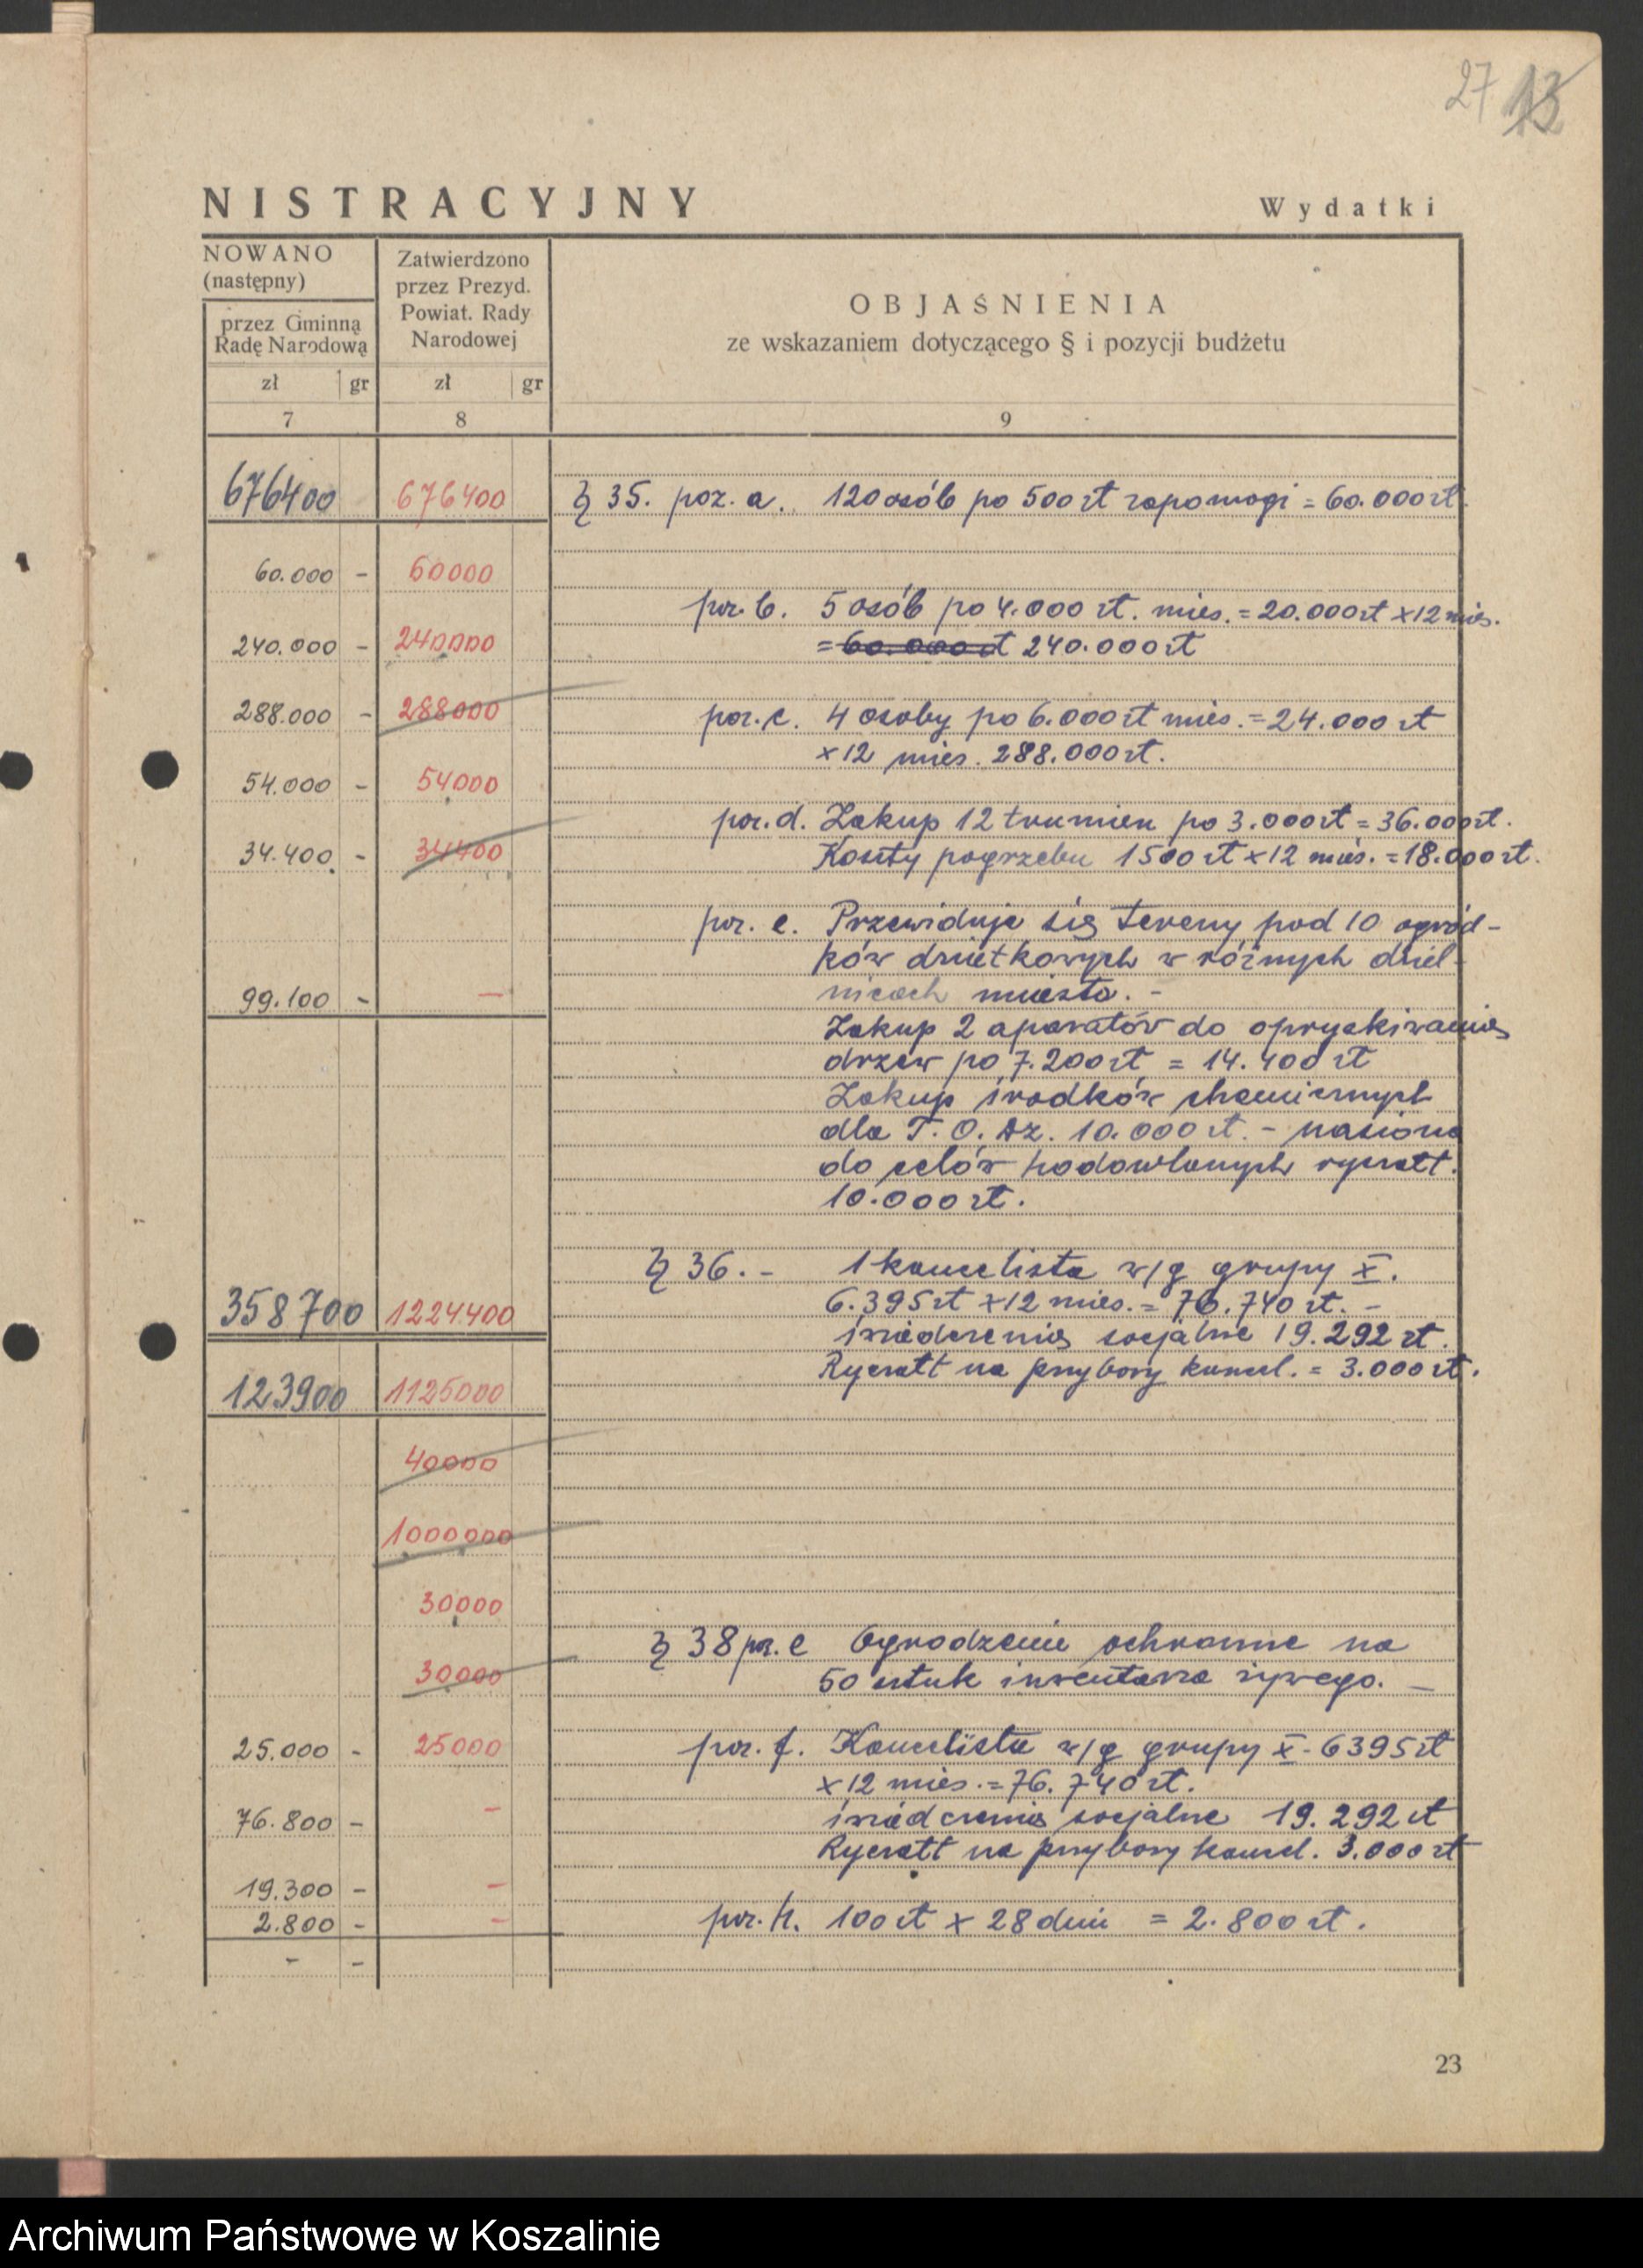 27 13
NISTRACYJNY Wydatki
NOWANO
(następny)
przez Gminną
Radę Narodową
Zatwierdzono
przez Prezyd.
Powiat. Rady
Narodowej
OBJAŚNIENIA
ze wskazaniem dotyczącego § i pozycji budżetu
zł gr zł gr
7 8 9
676400 676400 § 35. poz. a. 120 osób po 500 zł zapomogi = 60.000 zł
60.000 - 60000
poz. b. 5 osób po 4.000 zł. mies. = 20.000 zł x 12 mies.
240.000 - 240000 = 60.000 zł 240.000 zł
288.000 - 288000 poz. c. 4 osoby po 6.000 zł mies. = 24.000 zł
x 12 mies. 288.000 zł.
54.000 - 54000
poz. d. Zakup 12 trumien po 3.000 zł = 36.000 zł.
34.400 - 34400 Koszty pogrzebu 1500 zł x 12 mies. = 18.000 zł.
poz. e. Przewiduje się tereny pod 10 ogród-
ków dziatkowych w różnych dziel-
99.100 - - nicach miasta. -
Zakup 2 aparatów do opryskiwania
drzew po 7.200 zł = 14.400 zł
Zakup środków chemicznych
dla T. O. Dz. 10.000 zł. - nasiona
do celów hodowlanych ryczałt.
10.000 zł.
§ 36. - 1 kancelista w/g grupy X.
358700 1224400 6.395 zł x 12 mies. = 76.740 zł. -
świadczenia socjalne 19.292 zł.
123900 1125000 Ryczałt na przybory kancel. = 3.000 zł.
40000
1000000
30000
§ 38 poz. e Ogrodzenie ochronne na
30000 50 sztuk inwentarza żywego. -
25.000 - 25000 poz. f. Kancelista w/g grupy X - 6395 zł
x 12 mies. = 76.740 zł.
76.800 - - świadczenia socjalne 19.292 zł
Ryczałt na przybory kancel. 3.000 zł
19.300 - -
2.800 - - poz. h. 100 zł x 28 dni = 2.800 zł.
- -
23
Archiwum Państwowe w Koszalinie